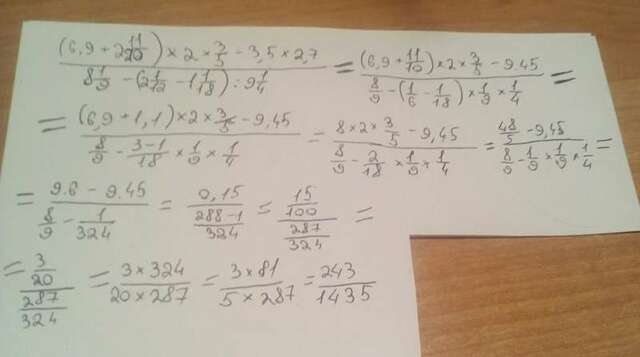 (6,9 + 2 11/20) × 2 × 3/5 - 3,5 × 2,7 / 8 1/9 - (2 1/12 - 1 1/18) : 9 1/4 = (6,9 + 11/10) × 2 × 3/5 - 9.45 / 8/9 - (1/6 - 1/18) × 1/9 × 1/4 =
= (6,9 + 1,1) × 2 × 3/5 - 9,45 / 8/9 - 3-1/18 × 1/9 × 1/4 = 8 × 2 × 3/5 - 9,45 / 8/9 - 2/18 × 1/9 × 1/4 = 48/5 - 9,45 / 8/9 - 1/9 × 1/9 × 1/4 =
= 9.6 - 9.45 / 8/9 - 1/324 = 0,15 / 288-1/324 = 15/100 / 287/324 =
= 3/20 / 287/324 = 3 × 324 / 20 × 287 = 3 × 81 / 5 × 287 = 243 / 1435